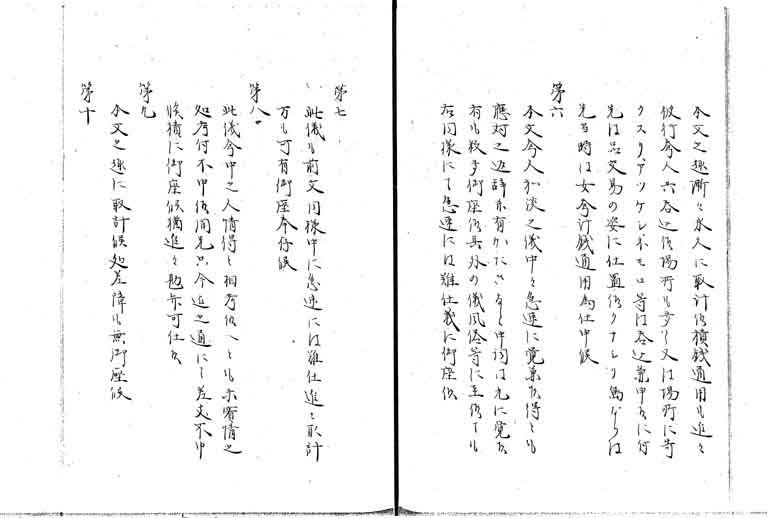 本文之趣漸々永久に取計候積銭通用も進々
被行舎人共呑込候場所も多く又は場所に寄
クスリアツケシ子モロ等は呑込兼申候に付
先は品交易の姿に仕置候クナシリ島ならは
先当時は女舎計銭通用為仕申候
第六
本文舎人和談之儀中々急速に覚兼候得とも
応対之返辞等有かたさなと申詞は尤に覚候
有も数多御座候其外の儀風俗等に至候ても
右同様にて急速には難仕義に御座候
第七
此儀も前文同様中に急速には難仕進々取計
方も可有御座奉存候
第八
此儀舎中之人情得と相考候へとも未審情之
処考付不申候間先只今迄之通にて差支不申
候積に御座候猶進々勘弁可仕候
第九
本文之趣に取計候処差障も無御座候
第十